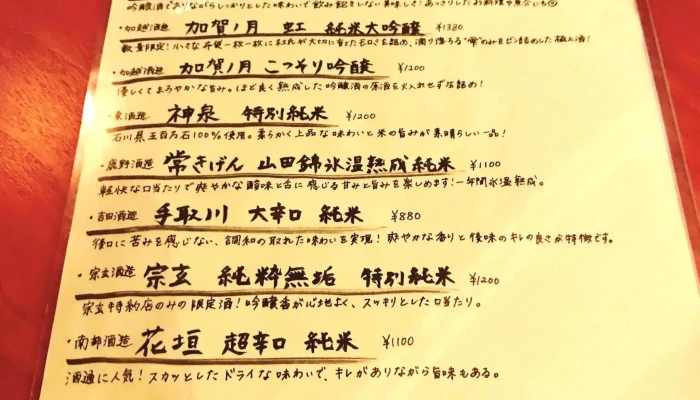 吟醸酒でありながらしっかりとした味わいで飲み飽きしない美味しさ!あっさりしたお料理や魚介にも
・加越酒造 加賀ノ月 虹 純米大吟醸 ¥1380
数量限定!小さな弁袋一枚一枚に杜氏が大切に育てたモロミを詰め、滴り落ちる"雫"のみをビン詰めした極上酒!
・加越酒造 加賀ノ月 こっそり吟醸 ¥1200
優しくてまろやかな旨み。ほど良く熟成した吟醸酒の原酒を火入れせず生詰め!
・東酒造 神泉 特別純米 ¥1200
石川県五百万石100%使用。柔らかく上品な味わいと米の旨みが素晴らしい一品!
・鹿野酒造 常きげん 山田錦氷温熟成純米 ¥1100
軽快な口当たりで爽やかな酸味と舌に感じる甘みと旨みを楽しめます!一年間氷温熟成。
・吉田酒造 手取川 大辛口 純米 ¥880
後口に苦みを感じない、調和の取れた味わいを実現!爽やかな香りと後味のキレの良さが特徴です。
・宗玄酒造 宗玄 純粋無垢 特別純米 ¥1200
宗玄特約店のみの限定酒!吟醸香が心地よく、スッキリとした口当たり。
・南部酒造 花垣 超辛口 純米 ¥1100
酒通に人気!スカッとしたドライな味わいで、キレがありながら旨味もある。